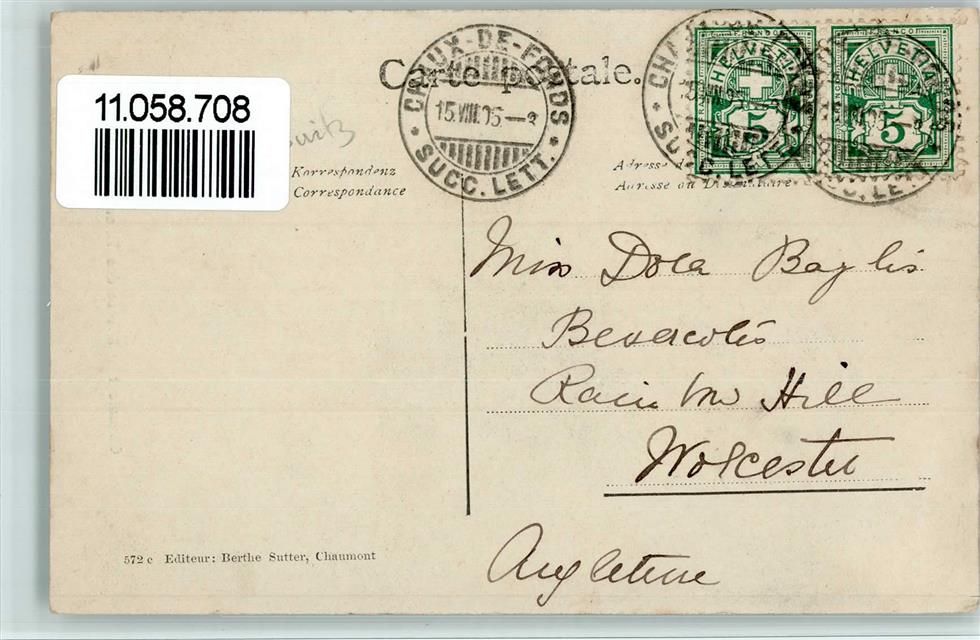 Carte postale.
11.058.708
CHAUX-DE-FONDS
15.VIII.05.—
SUCC. LETT.
FRANCO
HELVETIA
5
FRANCO
HELVETIA
5
SUCC. LETT.
Korrespondenz
Correspondance
Adresse
Adresse du
Miss Dora Baylis
Rainbow Hill
Worcester
Angleterre
572 c Editeur: Berthe Sutter, Chaumont